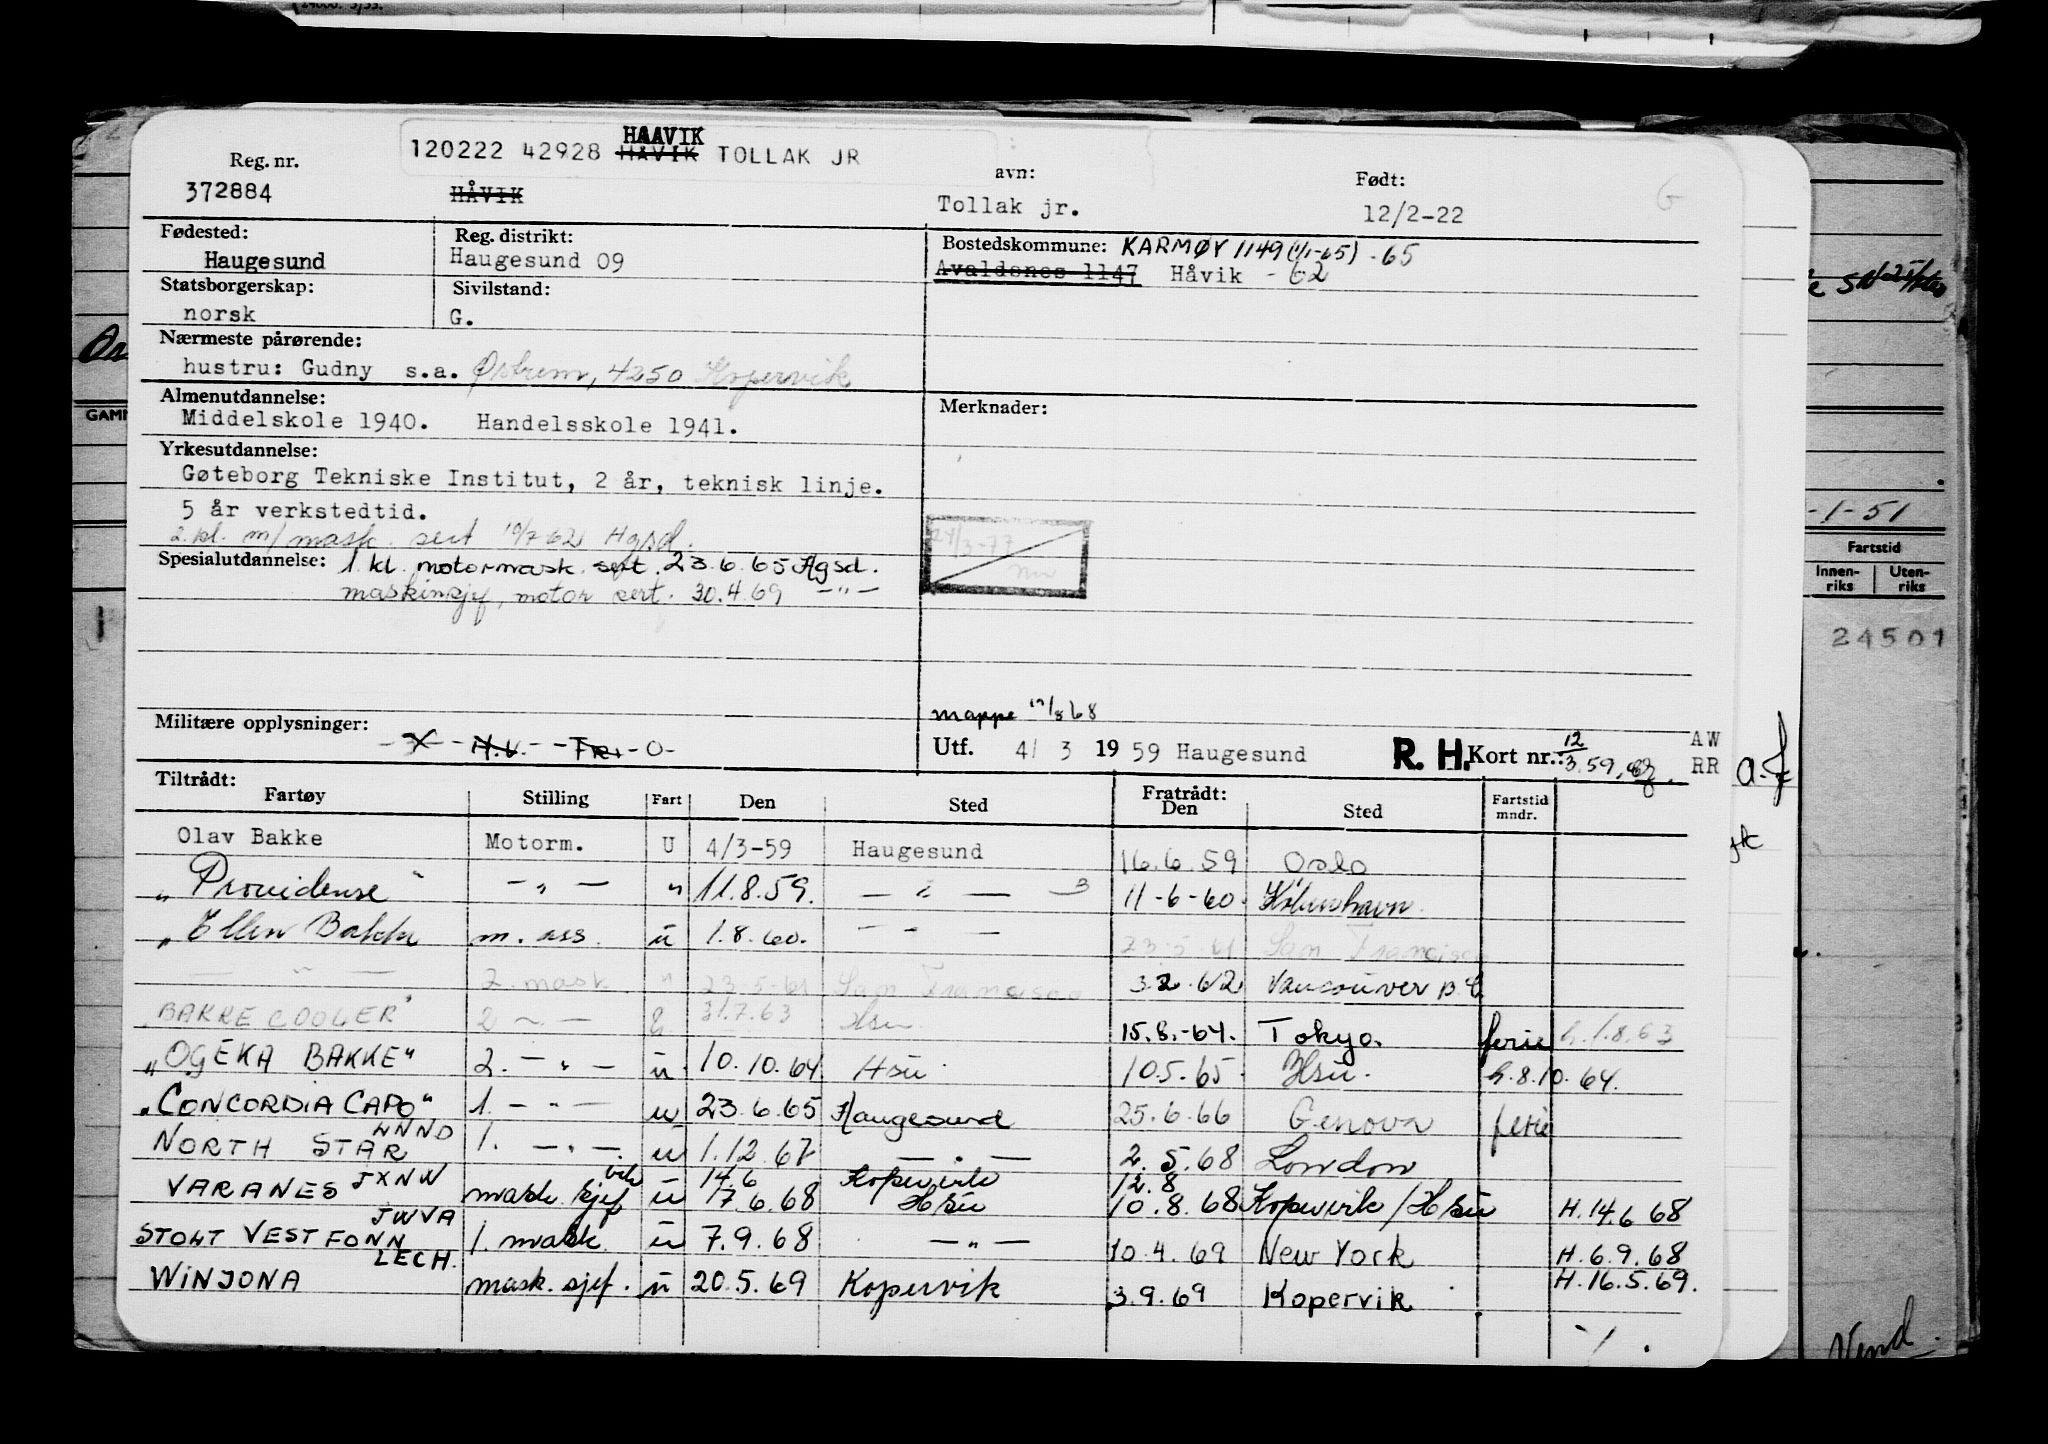 HAAVIK
120222 42928 HAVIK TOLLAK JR
Reg. nr. avn: Født:
372884 HÅVIK Tollak jr. 12/2-22
Fødested: Reg. distrikt: Bostedskommune: KARMØY 1149 (1/1-65) -65
Haugesund Haugesund 09 Avaldsnes 1147 Håvik - 62
Statsborgerskap: Sivilstand:
norsk G.
Nærmeste pårørende:
hustru: Gudny s.a. Østrem, 4250 Kopervik
Almenutdannelse: Merknader:
Middelskole 1940. Handelsskole 1941.
Yrkesutdannelse:
Gøteborg Tekniske Institut, 2 år, teknisk linje.
5 år verkstedtid.
2. kl. m/ mask. sert 10/7 62 Hgsd.
Spesialutdannelse: 1. kl. motormask. sert. 23.6.65 Hgsd.
maskinsjef, motor sert. 30.4.69 -"-
mappe /8 68
Militære opplysninger: H.V. Fri O-
Utf. 4/ 3 19 59 Haugesund R. H. Kort nr.: 12/3.59, AW
RR
Tiltrådt: Fratrådt:
Fartøy Stilling Fart Den Sted Den Sted Fartstid mndr.
Olav Bakke Motorm. U 4/3-59 Haugesund 16.6.59 Oslo
"Providense" -"- " 11.8.59. -"- 11-6-60. København
"Ellen Bakke m. ass. u 1.8.60. -"- 23.5.61 San Francisco
-"- 2. mask. " 23.5.61 San Francisco 3.2.62 Vancouver B.C.
"BAKKE COOLER" 2 -"- 31.7.63 Hsu 15.8.-64. Tokyo. ferie h. 1.8.63
"OGEKA BAKKE" 2. -"- u. 10.10.64. Hsu 10.5.65. Hsu. h.8.10.64.
"CONCORDIA CAPO" 1. -"- u 23.6.65 Haugesund 25.6.66 Genova ferie
LNND
NORTH STAR 1. -"- u 1.12.67 -"- 2.5.68 London
JXNW vik 14.6 Kopervik 12.8
VARANES mask. sjef u 17.6.68 Hsu 10.8.68 Kopervik/Hsu H.14.6 68
JWVA
STOLT VESTFONN 1. mask. u 7.9.68 -"- 10.4.69 New York H.6.9.68
LECH.
WINJONA mask. sjef. u 20.5.69 Kopervik 3.9.69 Kopervik H.16.5.69.
GAMM
-1-51
Fartstid
Innen-riks Uten-riks
24501
Vend